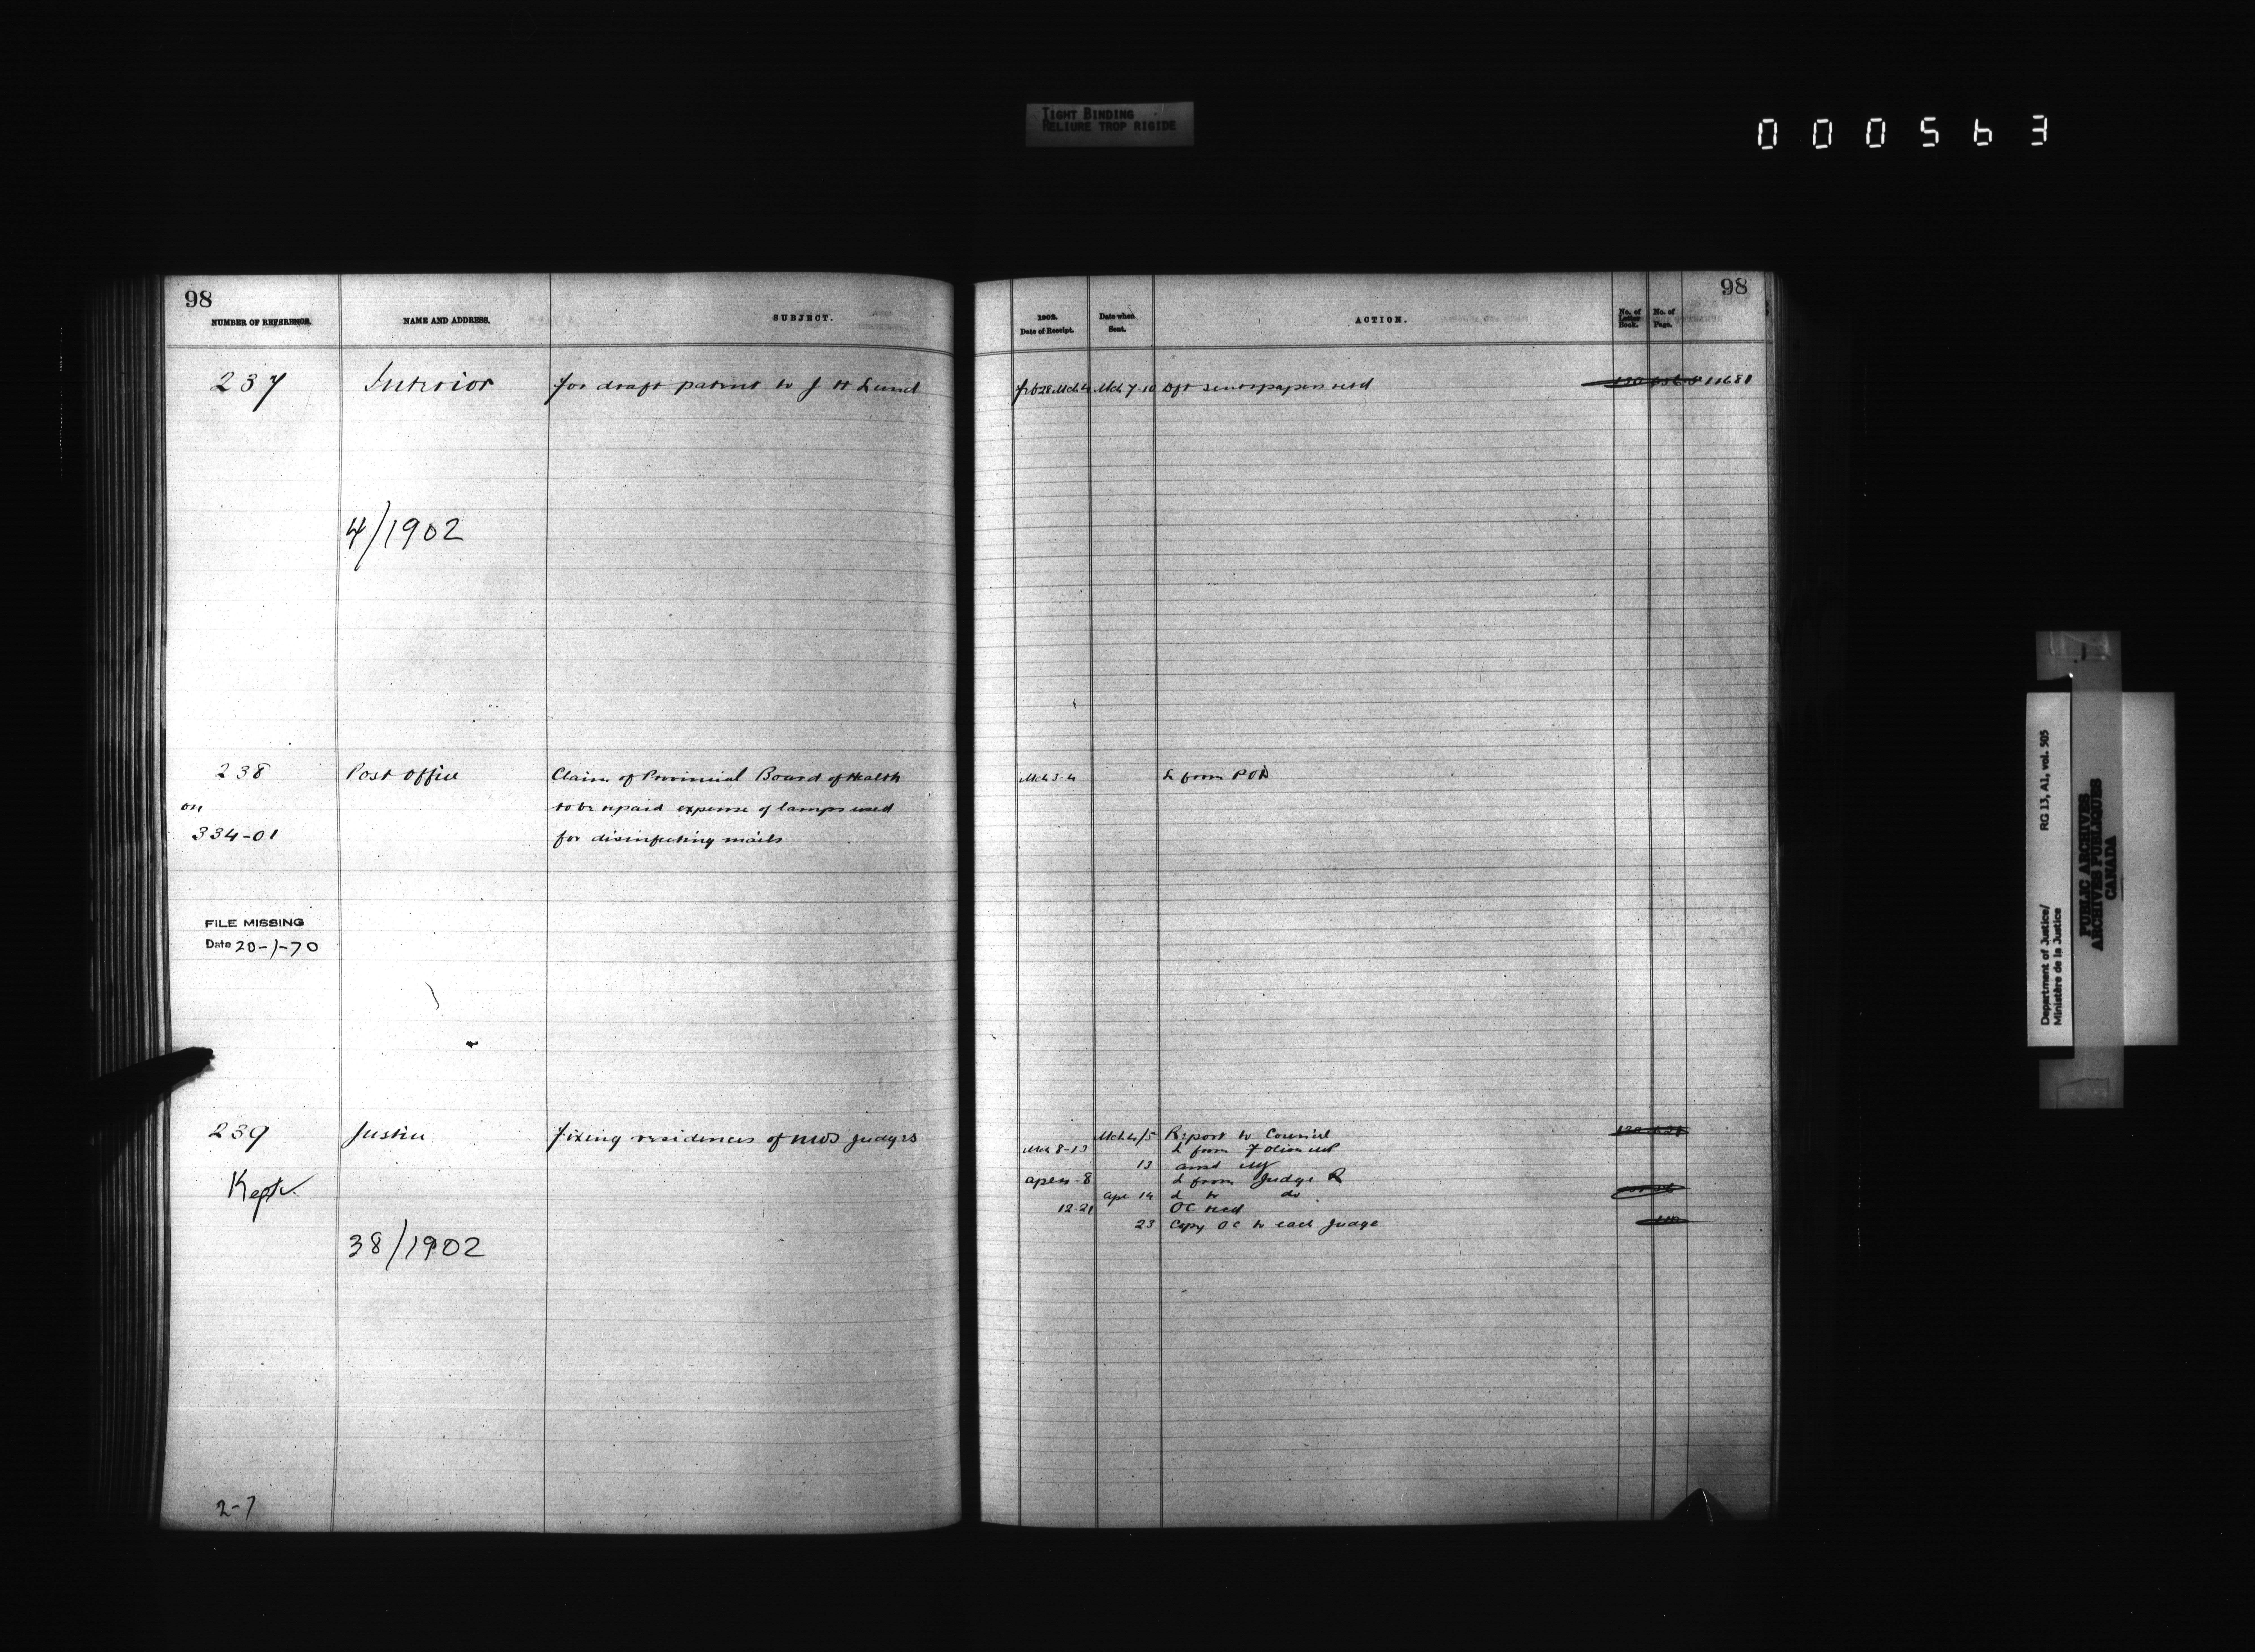 TIGHT BINDING
RELIURE TROP RIGIDE
000563
98
NUMBER OF REFERENCE.
NAME AND ADDRESS.
SUBJECT.
237
Interior
for draft patent to J H Lund
4/1902
238
Post Office
Claim of Provincial Board of Health
on
to be repaid expense of lamps used
334-01
for disinfecting mails
FILE MISSING
Date 20-1-70
239
Justice
Fixing residences of NWT Judges
Kept
38/1902
2-7
98
1902.
Date of Receipt.
Date when
Sent.
ACTION.
No. of
Letter
Book.
No. of
Page.
Feb 28 Mch 4
Mch 7-10
Dft sent papers retd
11681
Mch 3-4
L from POD
Mch 4/5
Report to Council
Mch 8-13
L from F Oliver MP
13
8
L from Judge R
Apr 14
L to do
12-21
OC recd
23
Copy OC to each Judge
Department of Justice/
Ministère de la Justice
RG 13, A1, vol. 505
PUBLIC ARCHIVES
ARCHIVES PUBLIQUES
CANADA